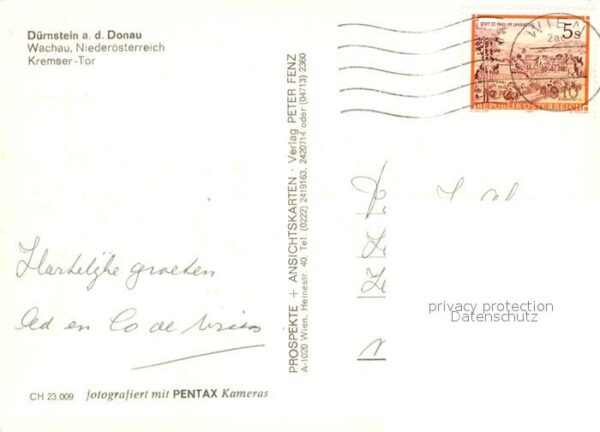 Dürnstein a. d. Donau
Wachau, Niederösterreich
Kremser-Tor
Hartelijke groeten
Ad en Co de Vries
CH 23.009 fotografiert mit PENTAX Kameras
PROSPEKTE + ANSICHTSKARTEN · Verlag PETER FENZ
A-1020 Wien, Heinestr. 40, Tel. (0222) 2419163, 2420714 oder (04713) 2360
STIFT ST. PAUL IM LAVANTTAL
5s
REPUBLIK ÖSTERREICH
WIEN
privacy protection
Datenschutz